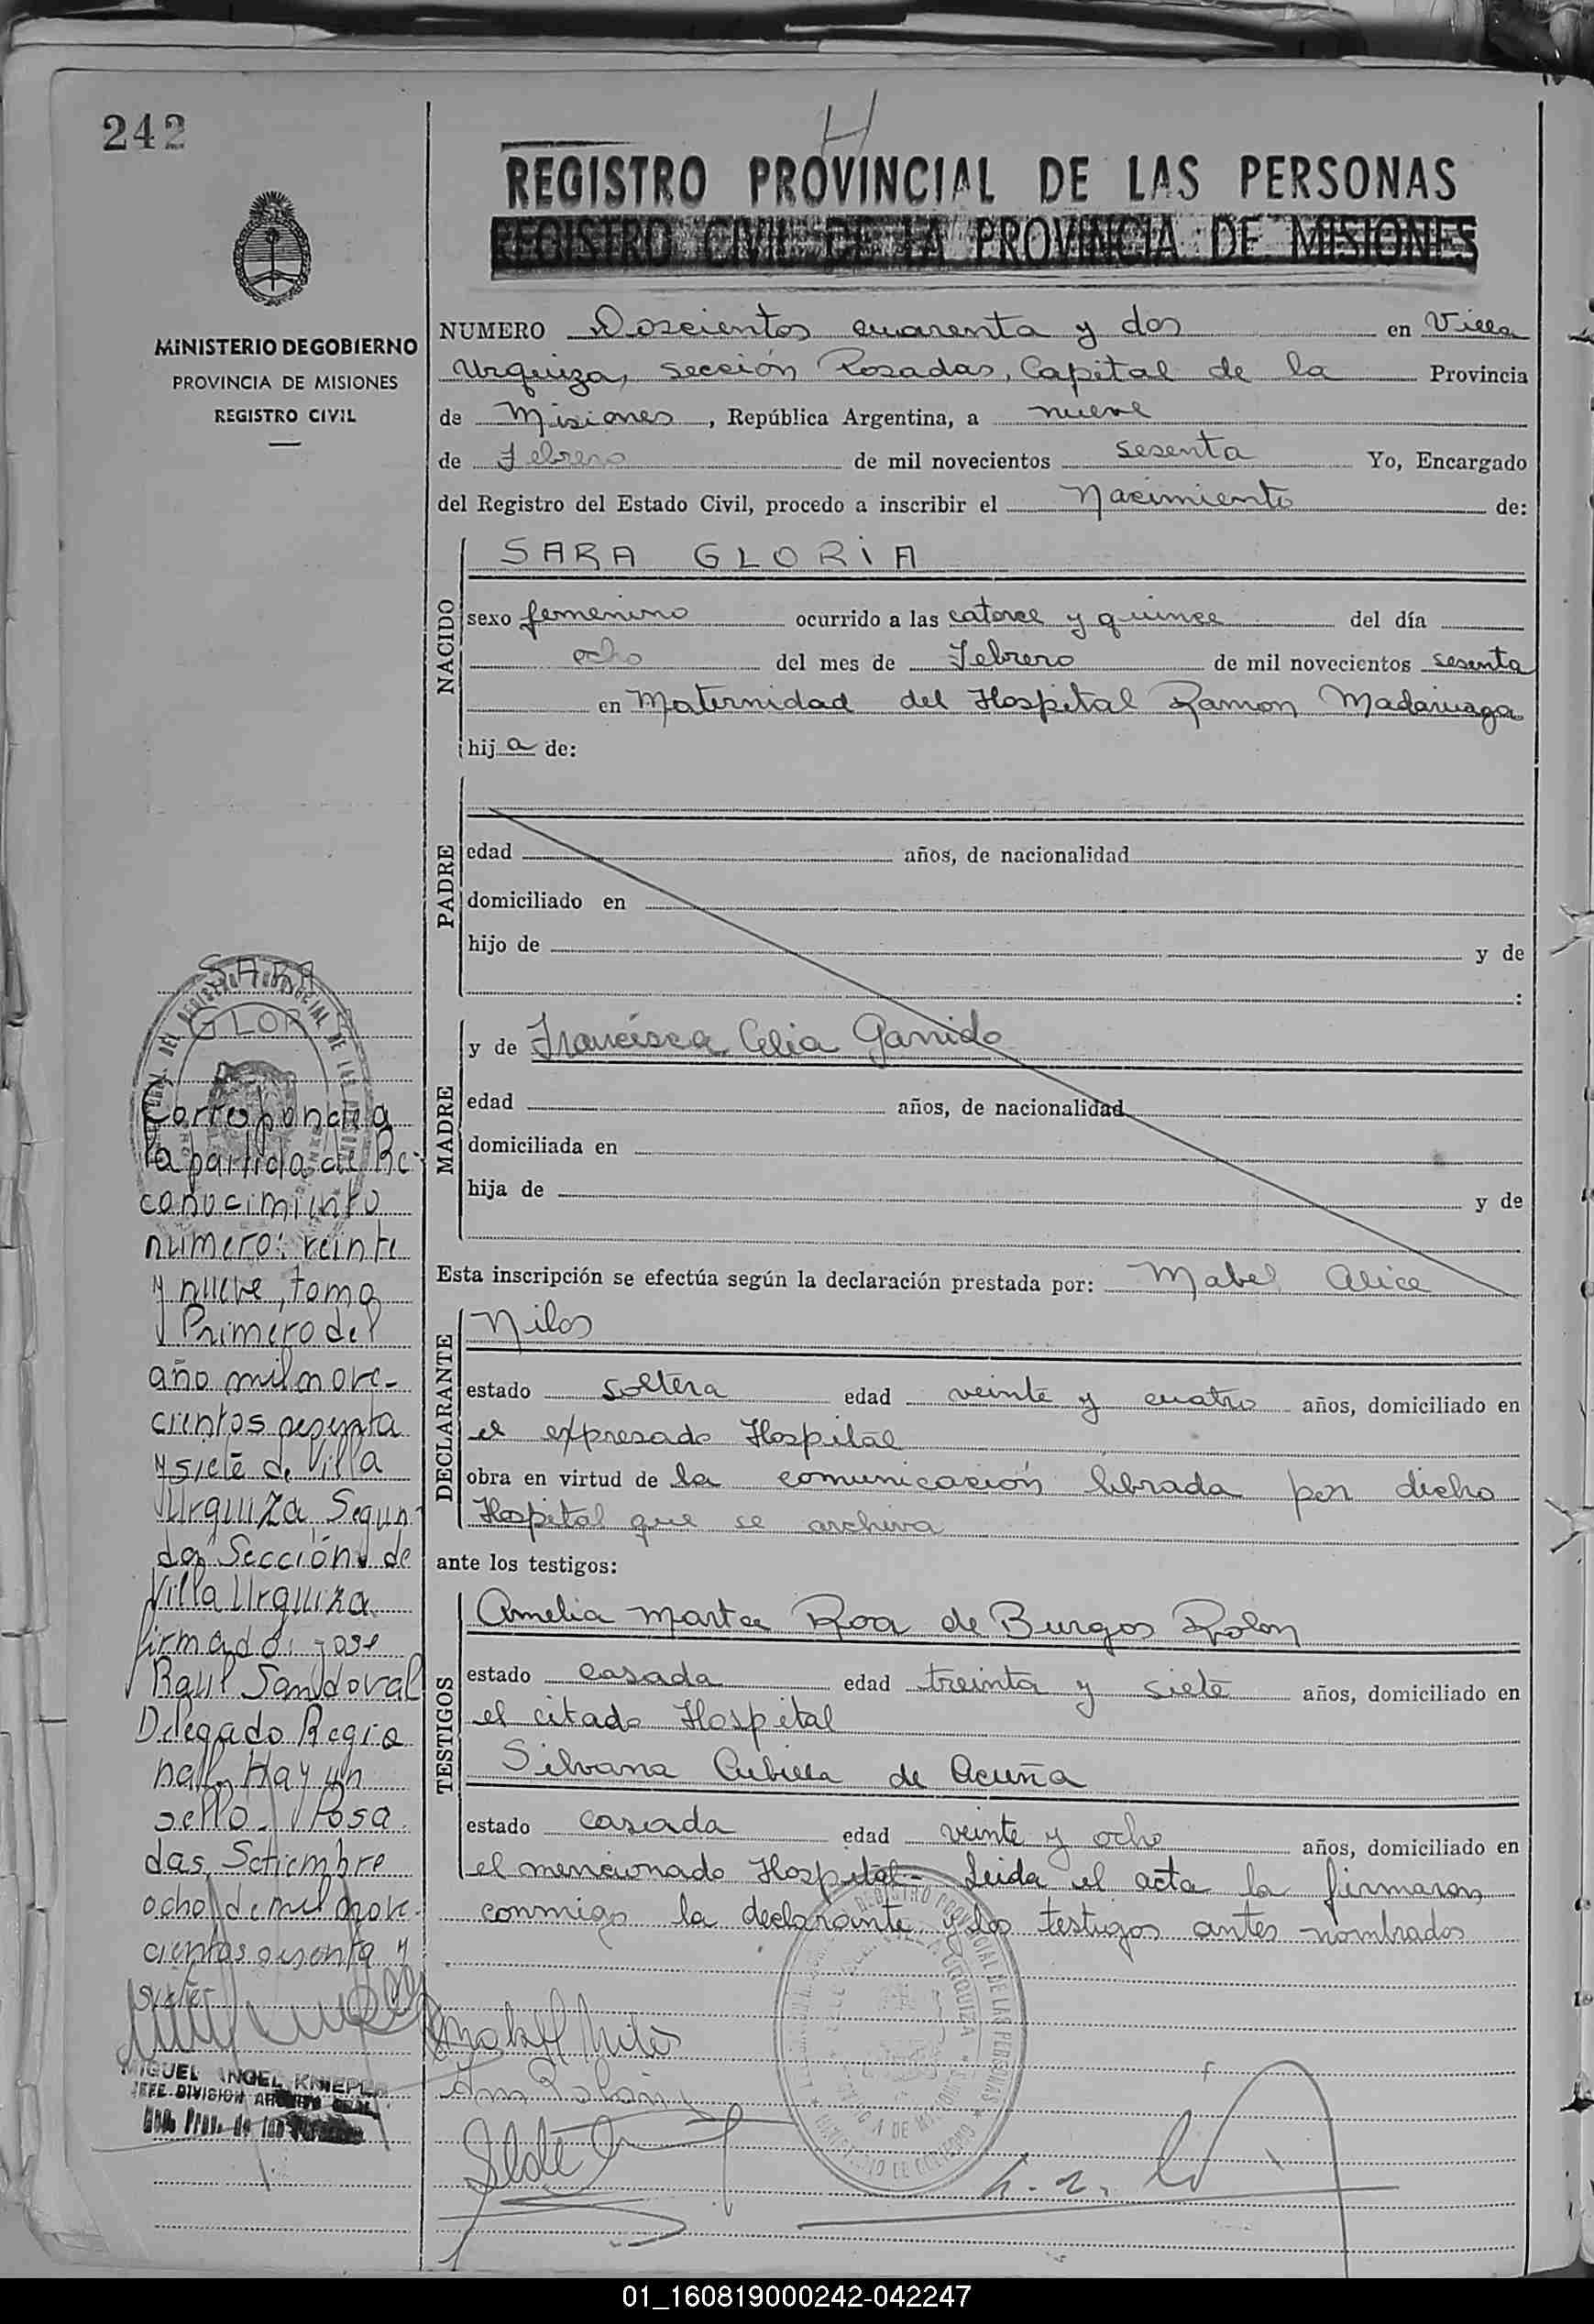 242
H
REGISTRO PROVINCIAL DE LAS PERSONAS
REGISTRO CIVIL DE LA PROVINCIA DE MISIONES
MINISTERIO DE GOBIERNO
PROVINCIA DE MISIONES
REGISTRO CIVIL
NUMERO Doscientos cuarenta y dos en Villa
Urquiza, sección Posadas, Capital de la Provincia
de Misiones, República Argentina, a nueve
de Febrero de mil novecientos sesenta Yo, Encargado
del Registro del Estado Civil, procedo a inscribir el Nacimiento de:
NACIDO
SARA GLORIA
sexo femenino ocurrido a las catorce y quince del día
ocho del mes de Febrero de mil novecientos sesenta
en Maternidad del Hospital Ramon Madariaga
hija de:
PADRE
edad años, de nacionalidad
domiciliado en
hijo de y de
:
MADRE
y de Francisca Celia Garrido
edad años, de nacionalidad
domiciliada en
hija de y de
Esta inscripción se efectúa según la declaración prestada por: Mabel Alice
DECLARANTE
Nilos
estado soltera edad veinte y cuatro años, domiciliado en
el expresado Hospital
obra en virtud de la comunicación librada por dicho
Hospital que se archiva
ante los testigos:
TESTIGOS
Amelia Marta Roa de Burgos Rolon
estado casada edad treinta y siete años, domiciliado en
el citado Hospital
Silvana Cubilla de Acuña
estado casada edad veinte y ocho años, domiciliado en
el mencionado Hospital.- Leida el acta la firmaron,
conmigo la declarante y los testigos antes nombrados
SARA
GLORIA
Corresponde a
la partida de Re-
conocimiento
número: veinte
y nueve, tomo
Primero del
año mil nove-
cientos sesenta
y siete de Villa
Urquiza, Segun-
da Sección de
Villa Urquiza
firmado: Jose
Raul Sandoval
Delegado Regio
nal. Hay un
sello. Posa
das, Setiembre
ocho de mil nove-
cientos sesenta y
siete.
MIGUEL ANGEL KNIEPER
JEFE DIVISION
01_160819000242-042247